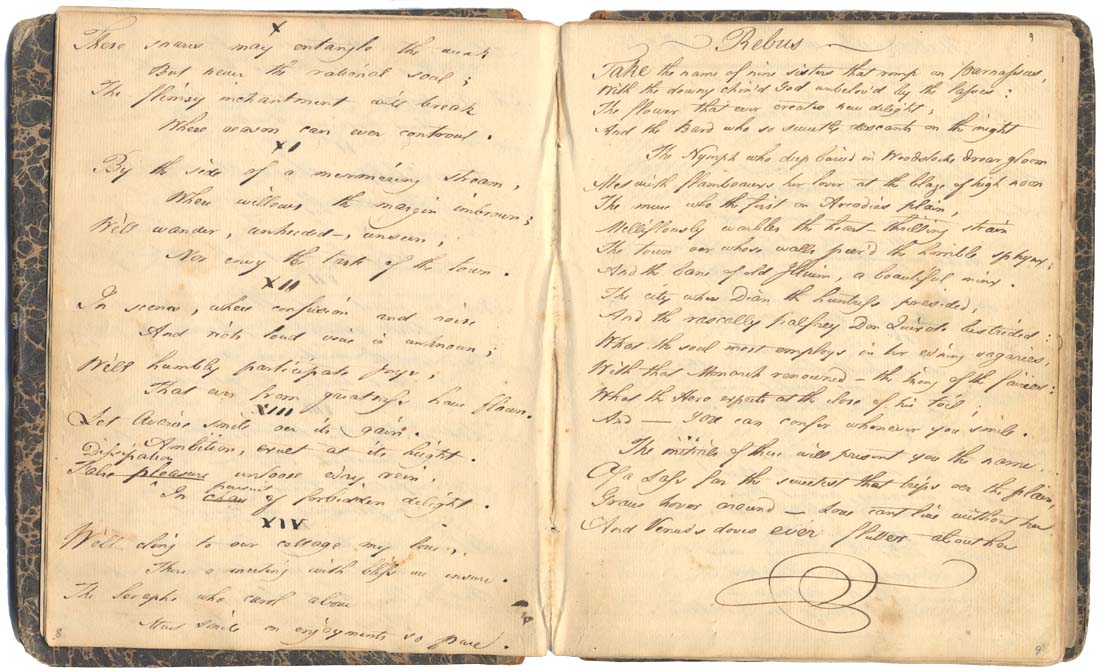 X
These snares may entangle the weak
But never the rational soul;
The flimsy inchantment will break
Where reason can ever controul.
XI
By the side of a murmering stream,
Where willows the margin imbrown;
We'll wander, unheeded, unseen,
Nor envy the taste of the town.
XII
In scenes, where confusion and noise
And riots loud voice is unknown;
We'll humbly participate joys,
That ever from greatness have flown.
XIII
Let Avarice smile oer its gain.
Ambition, exult at its height.
Dissipation
False pleasure unloose every rein;
pursuit
In chase of forbidden delight.
XIV
We'll cling to our cottage my love,
There a meeting with bliss we insure.
The Seraphs who carol above
Must smile on enjoyments so pure.
8
9
Rebus
Take the name of nine sisters that romp on Parnassus,
With the downy chin'd God unbelov'd by the lasses:
The flower that ever creates new delight,
And the Bard who so sweetly descants on the night
The Nymph who deep buried in Woodstocks drear gloom
Met with flambeauxs her lover at the blaze of high noon
The muse who the first on Arcadias plain,
Mellifluously warbles the heart-thrilling strain
The town oer whose walls peer'd the horrible sphynx;
And the bane of old Illium, a beautiful minx.
The city where Dian the huntress presided,
And the rascally palfrey Don Quixote bestrided:
What the soul most employs in her evening vagaries,
With that Monarch renowned – the king of the fairies:
What the Hero expects at the close of his toil,
And — you can confer whenever you smile.
The initials of these will present you the name
Of a Lass far the sweetest that trips oer the plain,
Graces hover around – Love cant live without her
And Venus's doves ever flutter about her
9